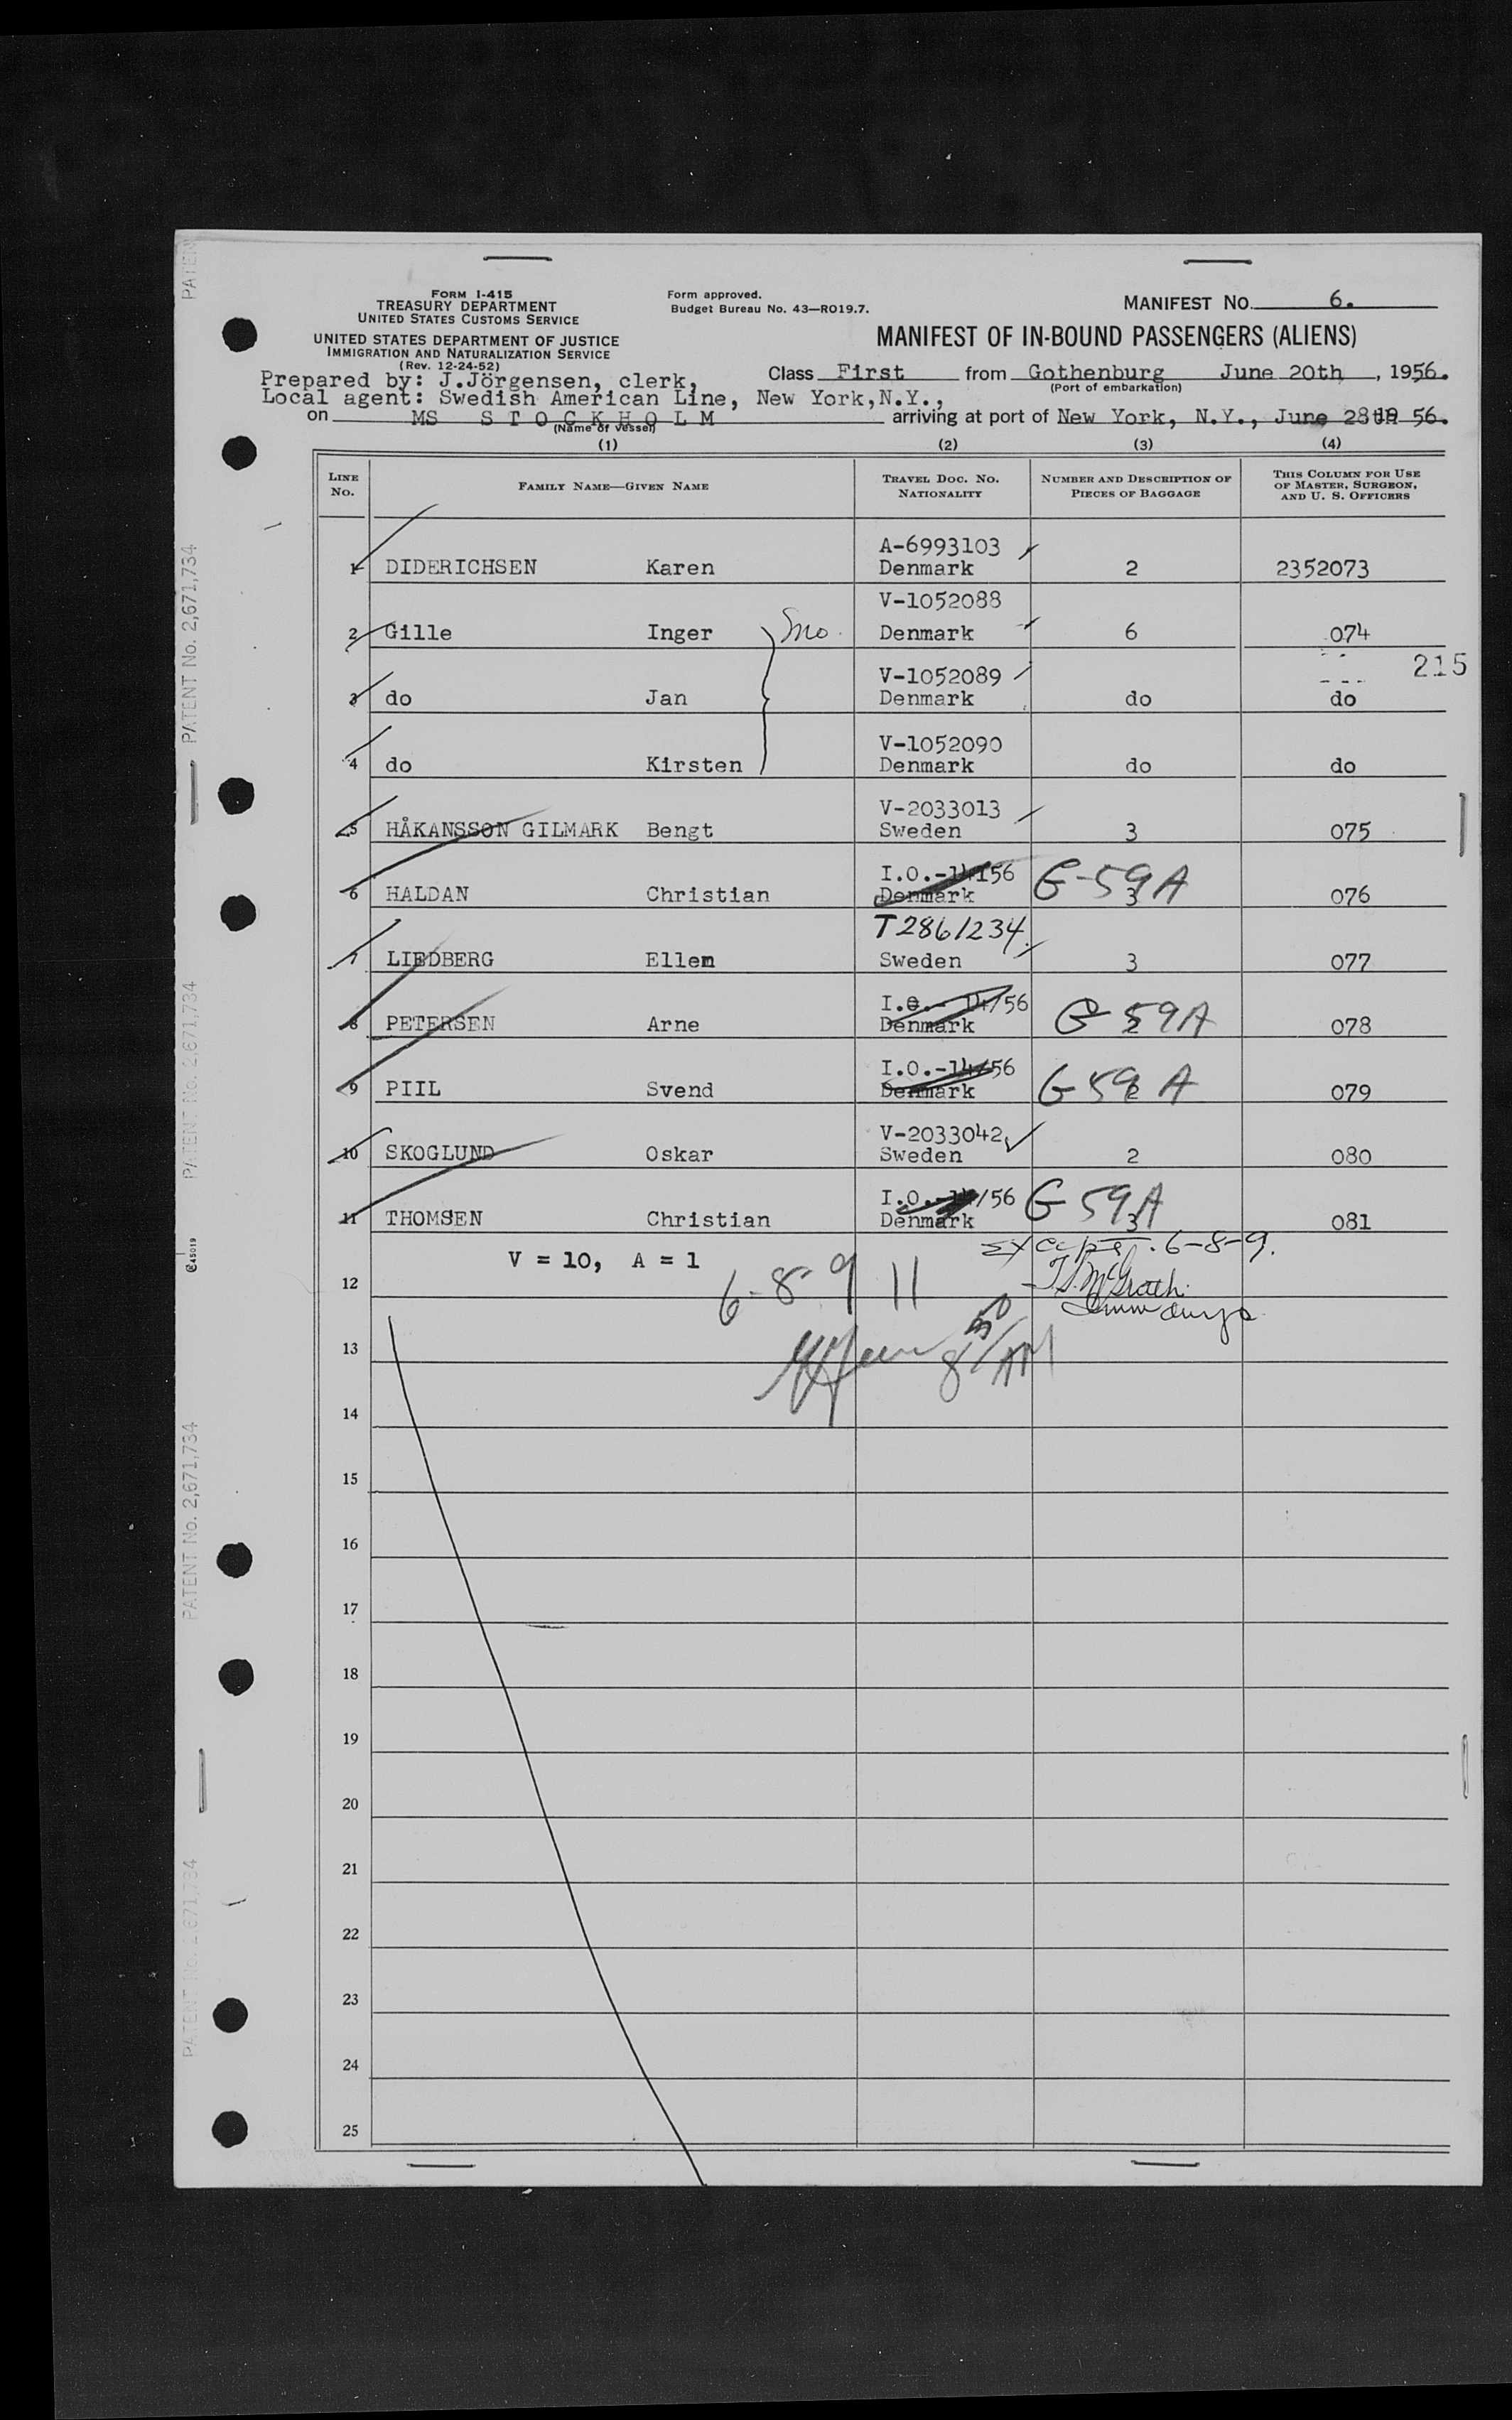 FORM I-415
TREASURY DEPARTMENT
UNITED STATES CUSTOMS SERVICE
UNITED STATES DEPARTMENT OF JUSTICE
IMMIGRATION AND NATURALIZATION SERVICE
(Rev. 12-24-52)
Form approved.
Budget Bureau No. 43—RO19.7.
MANIFEST NO. 6.
MANIFEST OF IN-BOUND PASSENGERS (ALIENS)
Prepared by: J.Jörgensen, clerk,
Class First from Gothenburg June 20th, 1956.
(Port of embarkation)
Local agent: Swedish American Line, New York,N.Y.,
on MS S T O C K H O L M arriving at port of New York, N.Y., June 28th 56.
(Name of vessel)
(1) (2) (3) (4)
LINE NO. FAMILY NAME—GIVEN NAME TRAVEL DOC. NO. NATIONALITY NUMBER AND DESCRIPTION OF PIECES OF BAGGAGE THIS COLUMN FOR USE OF MASTER, SURGEON, AND U. S. OFFICERS
A-6993103
1 DIDERICHSEN Karen Denmark 2 2352073
V-1052088
2 Gille Inger Denmark 6 074
215
V-1052089
3 do Jan Denmark do do
V-1052090
4 do Kirsten Denmark do do
V-2033013
5 HÅKANSSON GILMARK Bengt Sweden 3 075
I.O.-14156 G-59A
6 HALDAN Christian Denmark 3 076
T2861234
7 LIEDBERG Ellen Sweden 3 077
I.O.-14/56
8 PETERSEN Arne Denmark G 59A 078
I.O.-14/56
9 PIIL Svend Denmark G 59 A 079
V-2033042
10 SKOGLUND Oskar Sweden 2 080
I.O.-14/56 G 59A
11 THOMSEN Christian Denmark 3 081
V = 10, A = 1
Except. 6-8-9.
6-8-9 11
T.S. McGrath
12
13
8 30/AM
14
15
16
17
18
19
20
21
22
23
24
25
PATENT No. 2,671,734
PATENT No. 2,671,734
PATENT No. 2,671,734
PATENT No. 2,671,734
PATEN
©45019